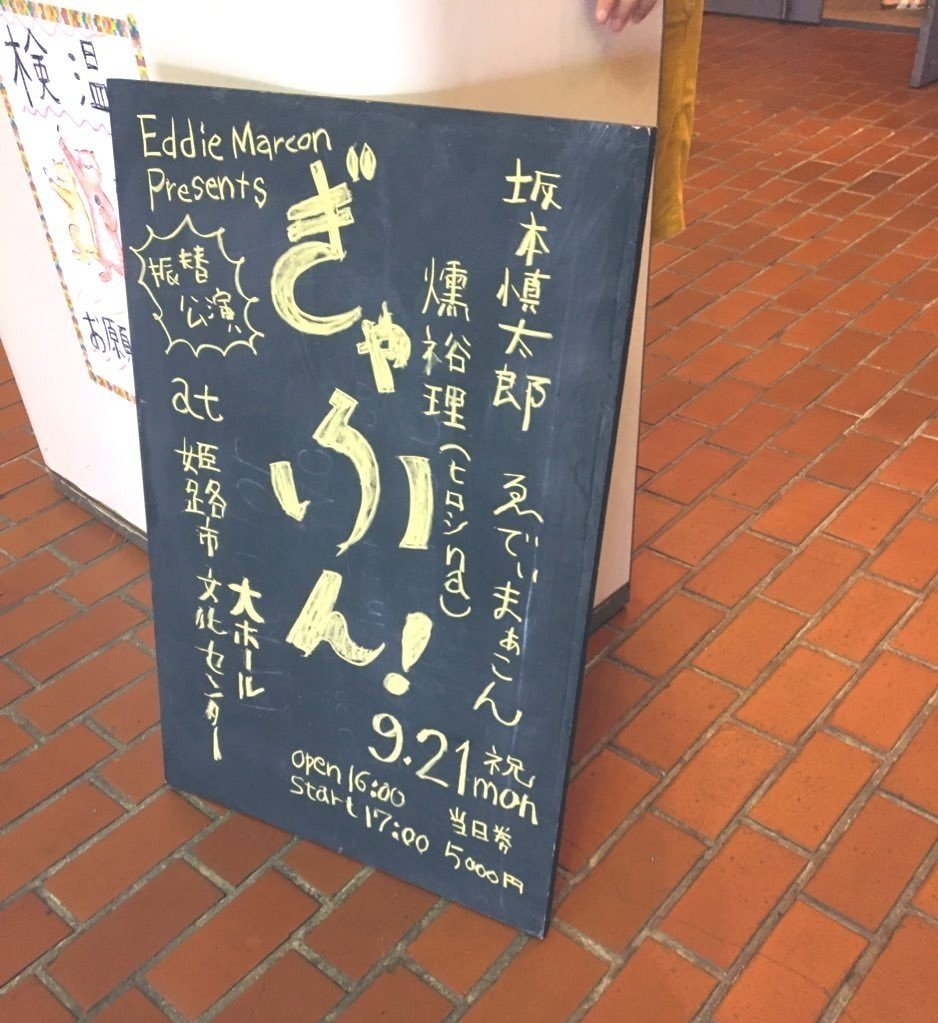 検温
お願
Eddie Marcon
Presents
振替
公演
ぎゃふん!
坂本慎太郎
ゑでぃまぁこん
燻裕理(ヒロシna)
at
姫路市文化センター
大ホール
9.21
祝
mon
open 16:00
start 17:00
当日券
5000円